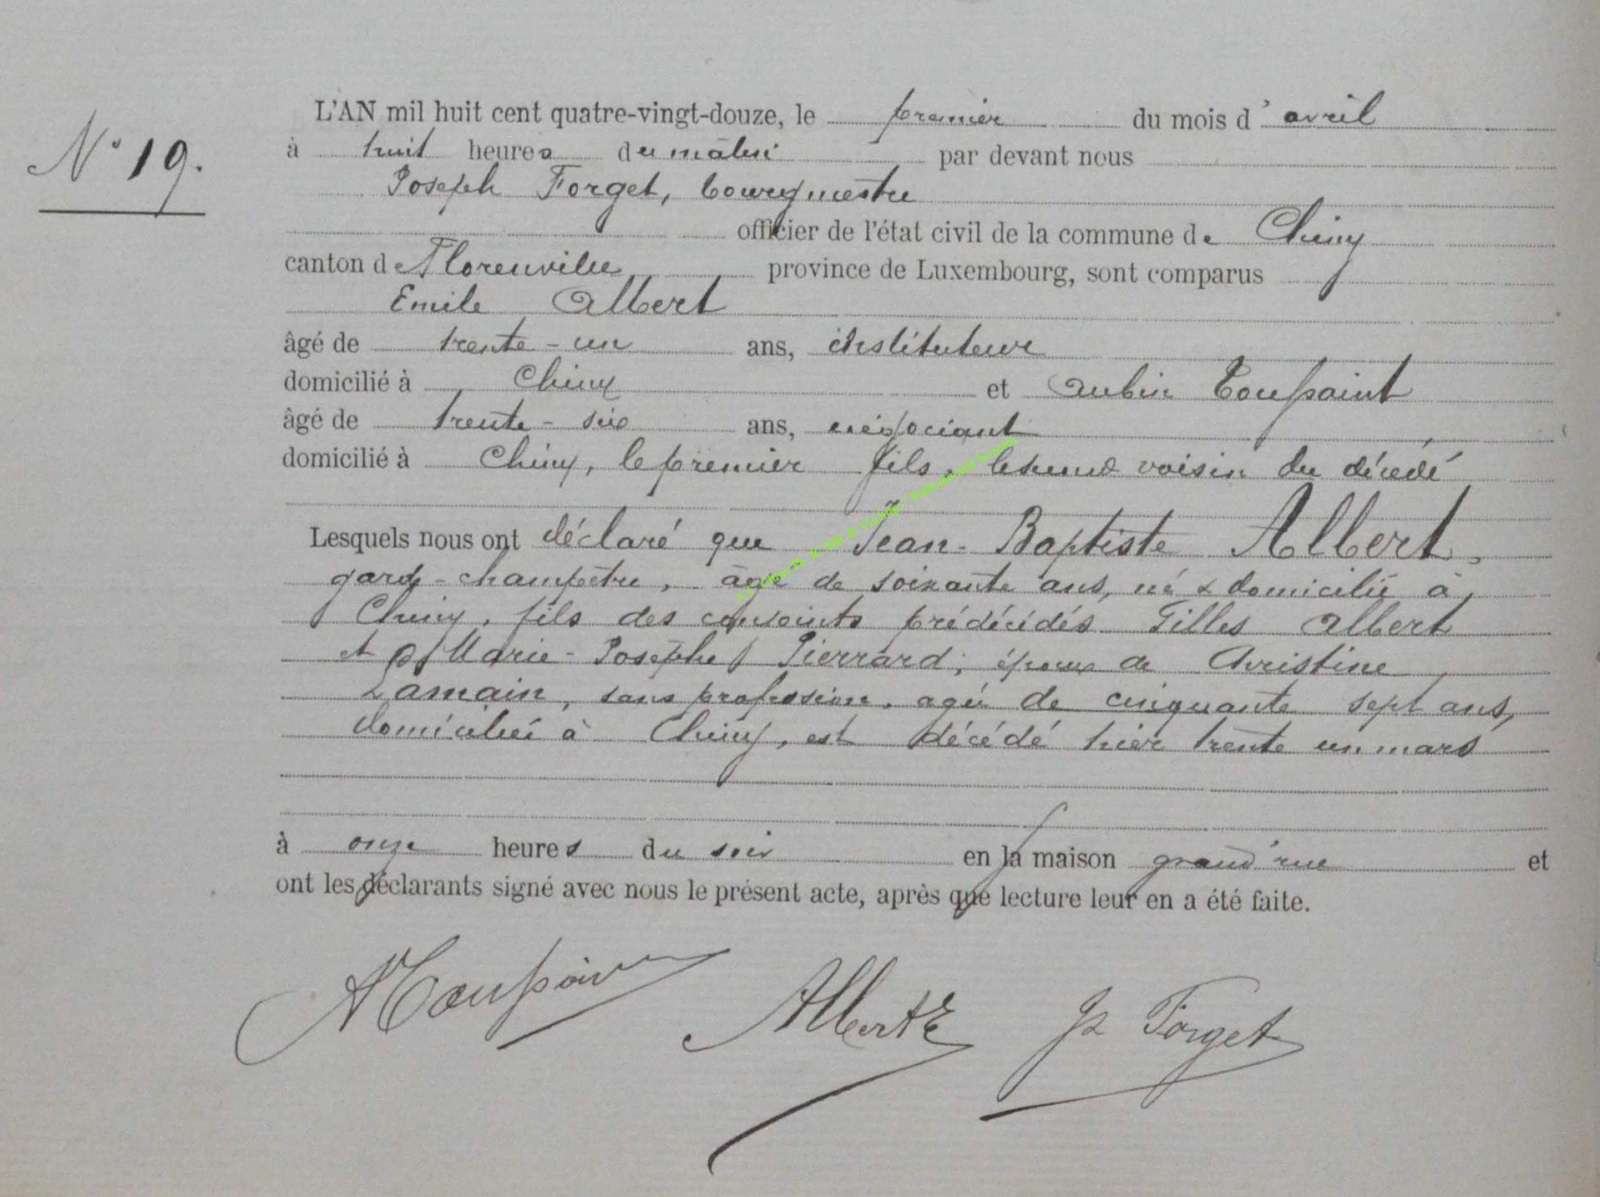 N° 19.
L'AN mil huit cent quatre-vingt-douze, le premier du mois d'avril
à huit heures du matin par devant nous
Joseph Forget, bourgmestre
officier de l'état civil de la commune de Chiny
canton de Florenville province de Luxembourg, sont comparus
Emile Albert
âgé de trente-un ans, instituteur
domicilié à Chiny et Aubin Toussaint
âgé de trente-six ans, négociant
domicilié à Chiny, le premier fils, le second voisin du décédé
Lesquels nous ont déclaré que Jean-Baptiste Albert,
garde-champêtre, âgé de soixante ans, né & domicilié à
Chiny, fils des conjoints prédécédés Gilles Albert
et Marie-Josèphe Pierrard, époux de Christine
Lamain, sans profession, agée de cinquante sept ans,
domiciliée à Chiny, est décédé hier trente un mars
à onze heures du soir en sa maison grand'rue et
ont les déclarants signé avec nous le présent acte, après que lecture leur en a été faite.
A Toussaint Albert E J Forget